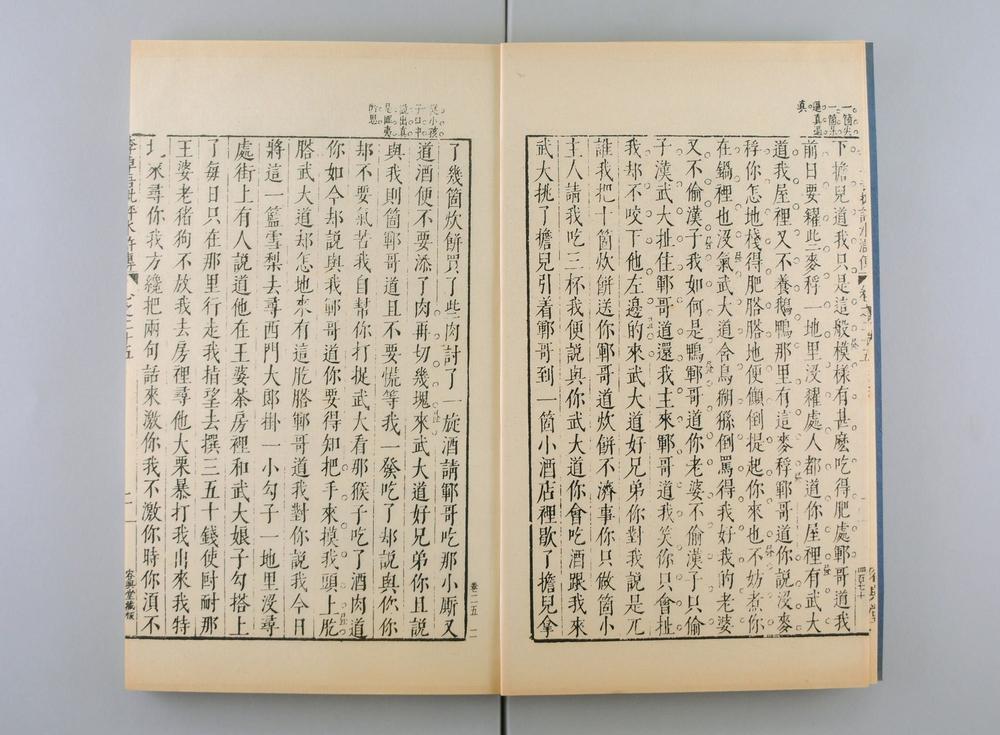 一箇尖
一箇呆
逼真逼
真
下擔兒道我只是這般模樣有甚麼吃得肥處鄆哥道我
前日要糴些麥稃一地里沒糴處人都道你屋裡有武大
道我屋裡又不養鵝鴨那里有這麥稃鄆哥道你說沒麥
稃你怎地棧得肥𦛨𦛨地便顛倒提起你來也不妨煮你
在鍋裡也沒氣武大道含鳥猢猻倒罵得我好我的老婆
又不偷漢子我如何是鴨鄆哥道你老婆不偷漢子只偷
子漢武大扯住鄆哥道還我主來鄆哥道我笑你只會扯
我却不咬下他左邊的來武大道好兄弟你對我說是兀
誰我把十箇炊餅送你鄆哥道炊餅不濟事你只做箇小
主人請我吃三杯我便說與你武大道你會吃酒跟我來
武大挑了擔兒引着鄆哥到一箇小酒店裡歇了擔兒拿
從小孩
子口中
說出真
是匪夷
所思
了幾箇炊餅買了些肉討了一旋酒請鄆哥吃那小廝又
道酒便不要添了肉再切幾塊來武大道好兄弟你且說
與我則箇鄆哥道且不要慌等我一發吃了却說與你你
却不要氣苦我自幫你打捉武大看那猴子吃了酒肉道
你如今却說與我鄆哥道你要得知把手來摸我頭上肐
𦛨武大道却怎地來有這肐𦛨鄆哥道我對你說我今日
將這一籃雪梨去尋西門大郎掛一小勾子一地里沒尋
處街上有人說道他在王婆茶房裡和武大娘子勾搭上
了每日只在那里行走我指望去撰三五十錢使叵耐那
王婆老猪狗不放我去房裡尋他大栗暴打我出來我特
地來尋你我方纔把兩句話來激你我不激你時你須不
卷二五 二
容與堂藏板